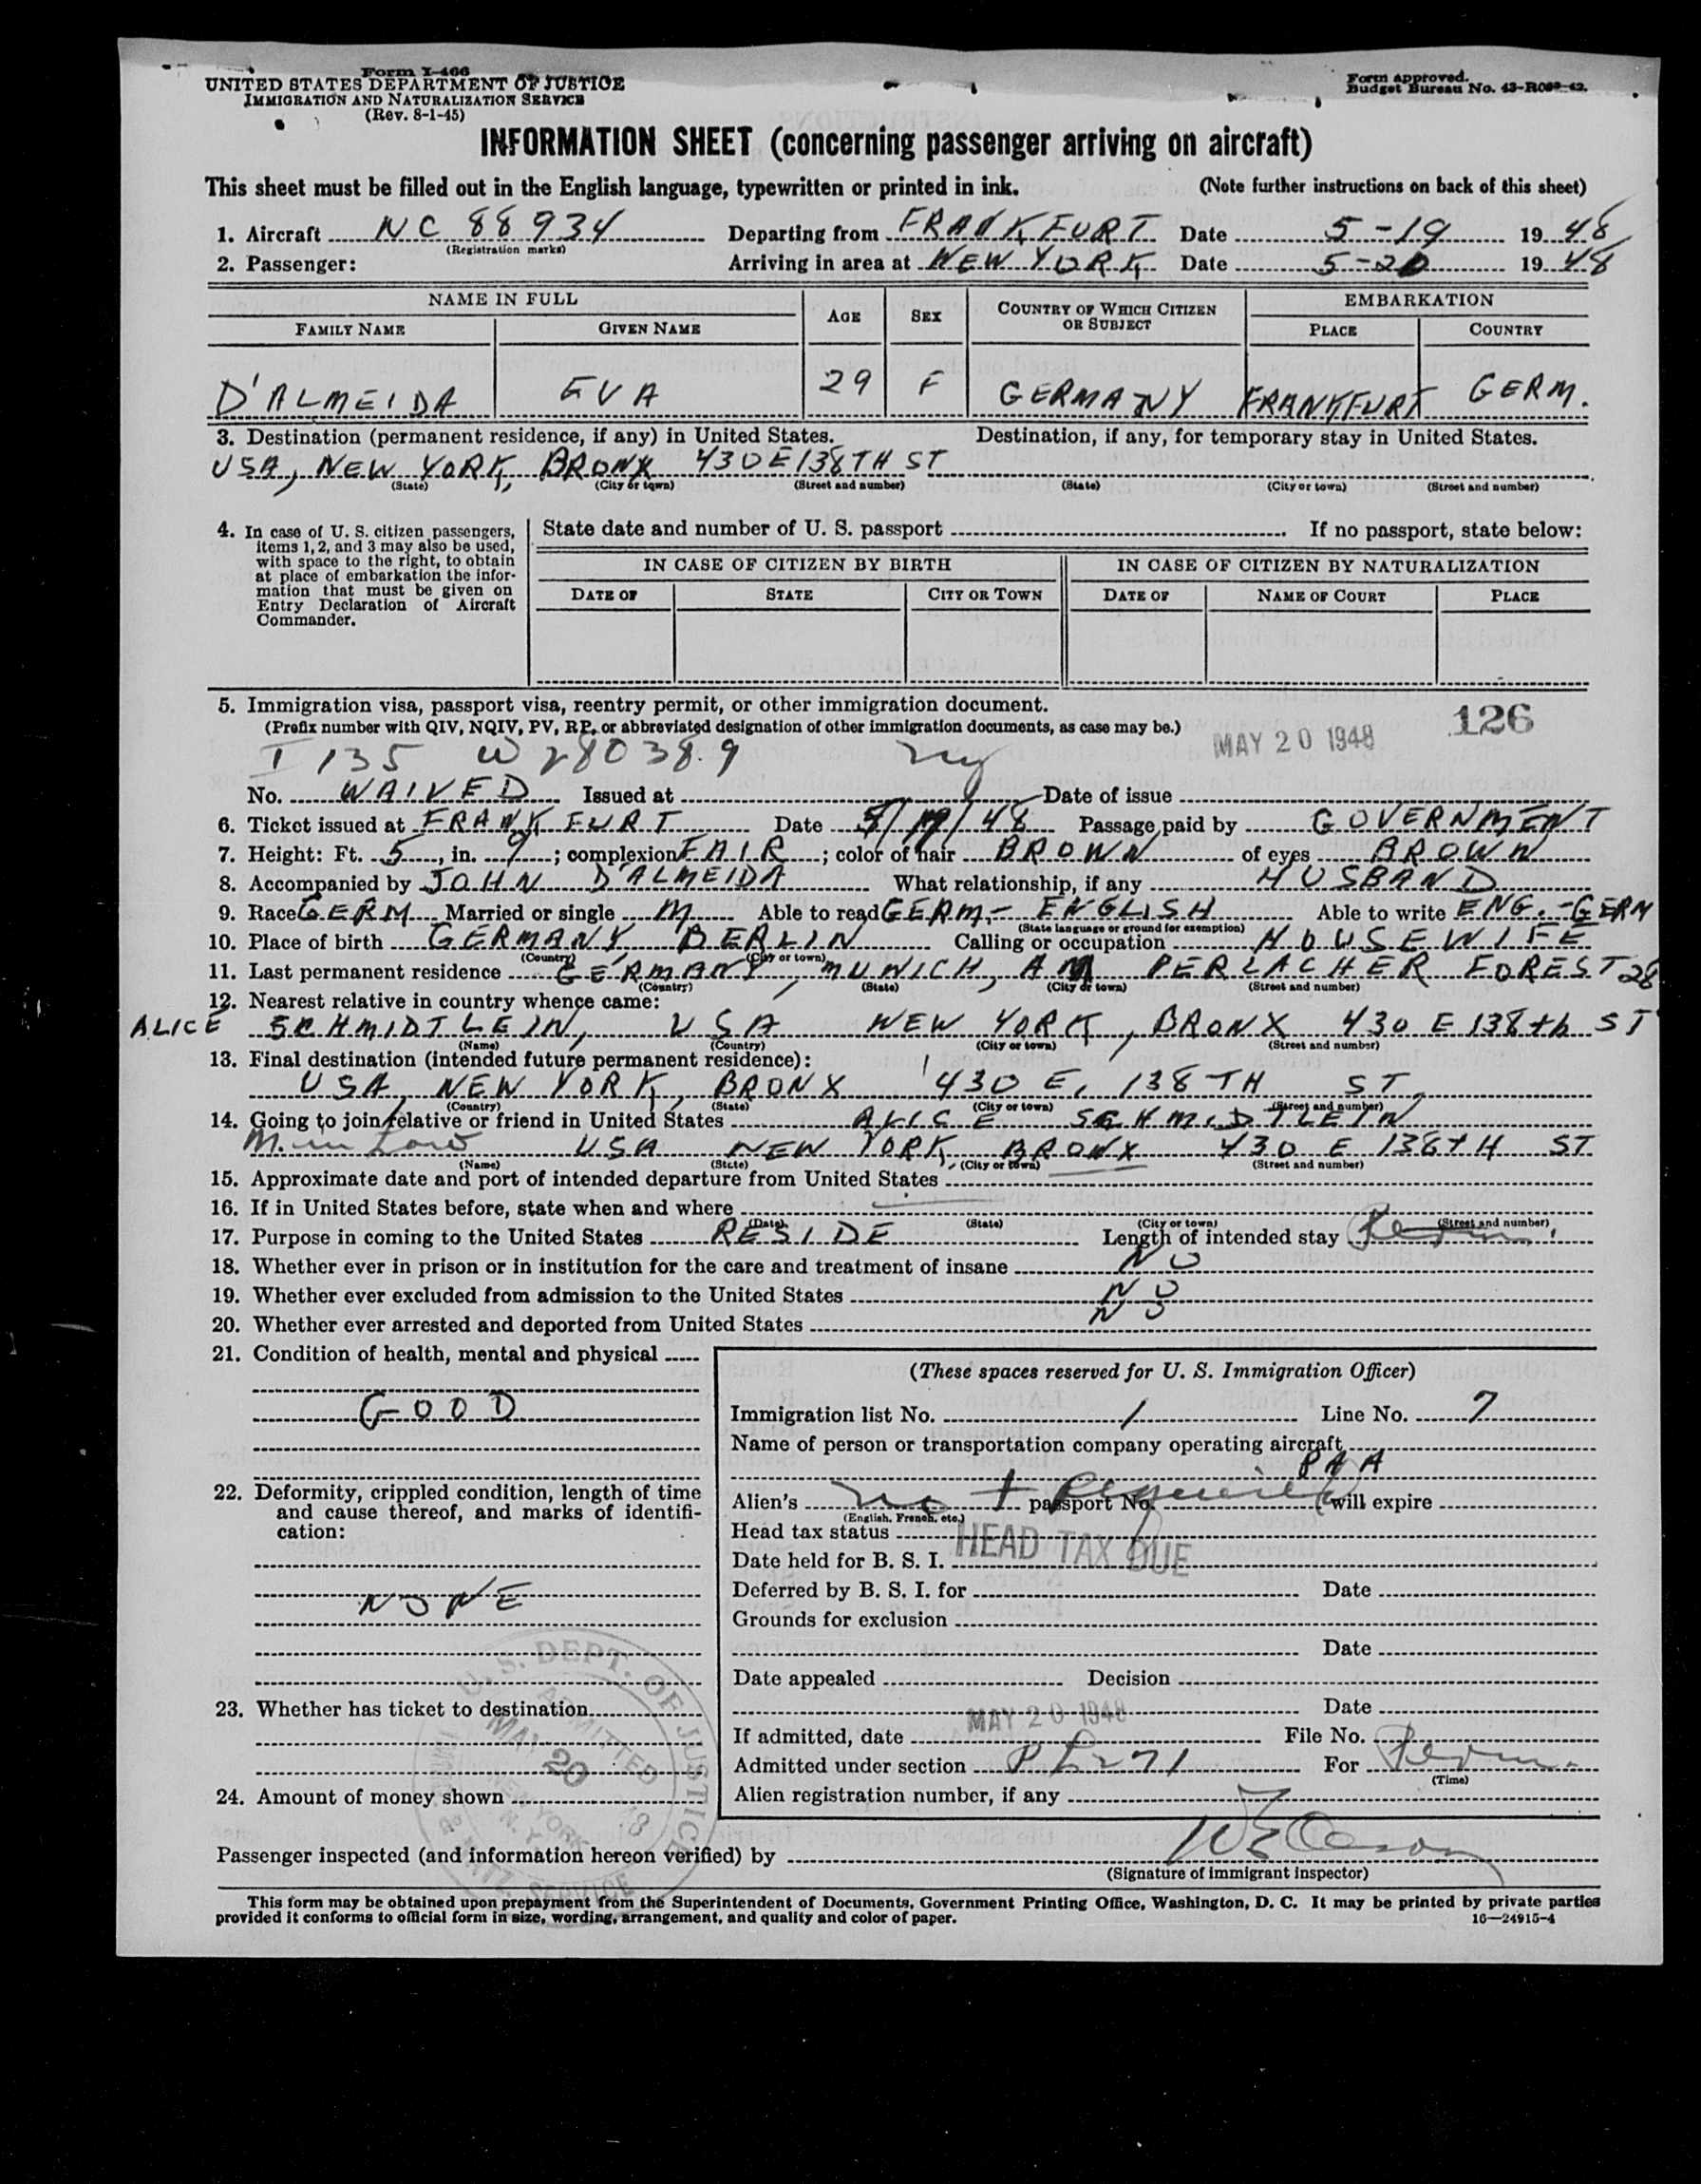 Form I-466
UNITED STATES DEPARTMENT OF JUSTICE
IMMIGRATION AND NATURALIZATION SERVICE
(Rev. 8-1-45)
Form approved.
Budget Bureau No.
INFORMATION SHEET (concerning passenger arriving on aircraft)
This sheet must be filled out in the English language, typewritten or printed in ink. (Note further instructions on back of this sheet)
1. Aircraft NC 88934 Departing from FRANKFURT Date 5-19 1948
(Registration marks)
2. Passenger: Arriving in area at NEW YORK Date 5-20 1948
NAME IN FULL AGE SEX COUNTRY OF WHICH CITIZEN OR SUBJECT EMBARKATION
FAMILY NAME GIVEN NAME PLACE COUNTRY
D'ALMEIDA EVA 29 F GERMANY FRANKFURT GERM.
3. Destination (permanent residence, if any) in United States. Destination, if any, for temporary stay in United States.
USA, NEW YORK, BRONX 430 E 138TH ST
(State) (City or town) (Street and number) (State) (City or town) (Street and number)
4. In case of U. S. citizen passengers,
items 1, 2, and 3 may also be used,
with space to the right, to obtain
at place of embarkation the infor-
mation that must be given on
Entry Declaration of Aircraft
Commander.
State date and number of U. S. passport If no passport, state below:
IN CASE OF CITIZEN BY BIRTH IN CASE OF CITIZEN BY NATURALIZATION
DATE OF STATE CITY OR TOWN DATE OF NAME OF COURT PLACE
5. Immigration visa, passport visa, reentry permit, or other immigration document.
(Prefix number with QIV, NQIV, PV, RP, or abbreviated designation of other immigration documents, as case may be.)
MAY 20 1948 126
I 135 W 28038.9 ny
No. WAIVED Issued at Date of issue
6. Ticket issued at FRANKFURT Date 5/19/48 Passage paid by GOVERNMENT
7. Height: Ft. 5, in. 9; complexion FAIR; color of hair BROWN of eyes BROWN
8. Accompanied by JOHN D'ALMEIDA What relationship, if any HUSBAND
9. Race GERM Married or single M Able to read GERM,- ENGLISH Able to write ENG.-GERM
(State language or ground for exemption)
10. Place of birth GERMANY, BERLIN Calling or occupation HOUSEWIFE
(Country) (City or town)
11. Last permanent residence GERMANY, MUNICH, AM PERLACHER FOREST 28
(Country) (State) (City or town) (Street and number)
12. Nearest relative in country whence came:
ALICE SCHMIDTLEIN, USA NEW YORK, BRONX 430 E 138th ST
(Name) (Country) (City or town) (Street and number)
13. Final destination (intended future permanent residence):
USA, NEW YORK, BRONX 430 E. 138TH ST.
(Country) (State) (City or town) (Street and number)
14. Going to join relative or friend in United States ALICE SCHMIDTLEIN
M. in Law USA NEW YORK, BRONX 430 E 138TH ST
(Name) (State) (City or town) (Street and number)
15. Approximate date and port of intended departure from United States
16. If in United States before, state when and where
(Date) (State) (City or town) (Street and number)
17. Purpose in coming to the United States RESIDE Length of intended stay Perm.
18. Whether ever in prison or in institution for the care and treatment of insane NO
19. Whether ever excluded from admission to the United States NO
20. Whether ever arrested and deported from United States NO
21. Condition of health, mental and physical
GOOD
22. Deformity, crippled condition, length of time
and cause thereof, and marks of identifi-
cation:
NONE
23. Whether has ticket to destination
24. Amount of money shown
(These spaces reserved for U. S. Immigration Officer)
Immigration list No. 1 Line No. 7
Name of person or transportation company operating aircraft
PAA
Alien's not required passport No. will expire
(English, French, etc.)
Head tax status
HEAD TAX DUE
Date held for B. S. I.
Deferred by B. S. I. for Date
Grounds for exclusion
Date
Date appealed Decision
Date
If admitted, date MAY 20 1948 File No.
Admitted under section PL 271 For Perm.
(Time)
Alien registration number, if any
U. S. DEPT. OF JUSTICE
ADMITTED
MAY 20 48
NEW YORK
N. Y.
IMMIG. & NATZ. SERVICE
Passenger inspected (and information hereon verified) by
(Signature of immigrant inspector)
This form may be obtained upon prepayment from the Superintendent of Documents, Government Printing Office, Washington, D. C. It may be printed by private parties
provided it conforms to official form in size, wording, arrangement, and quality and color of paper. 16—24915-4